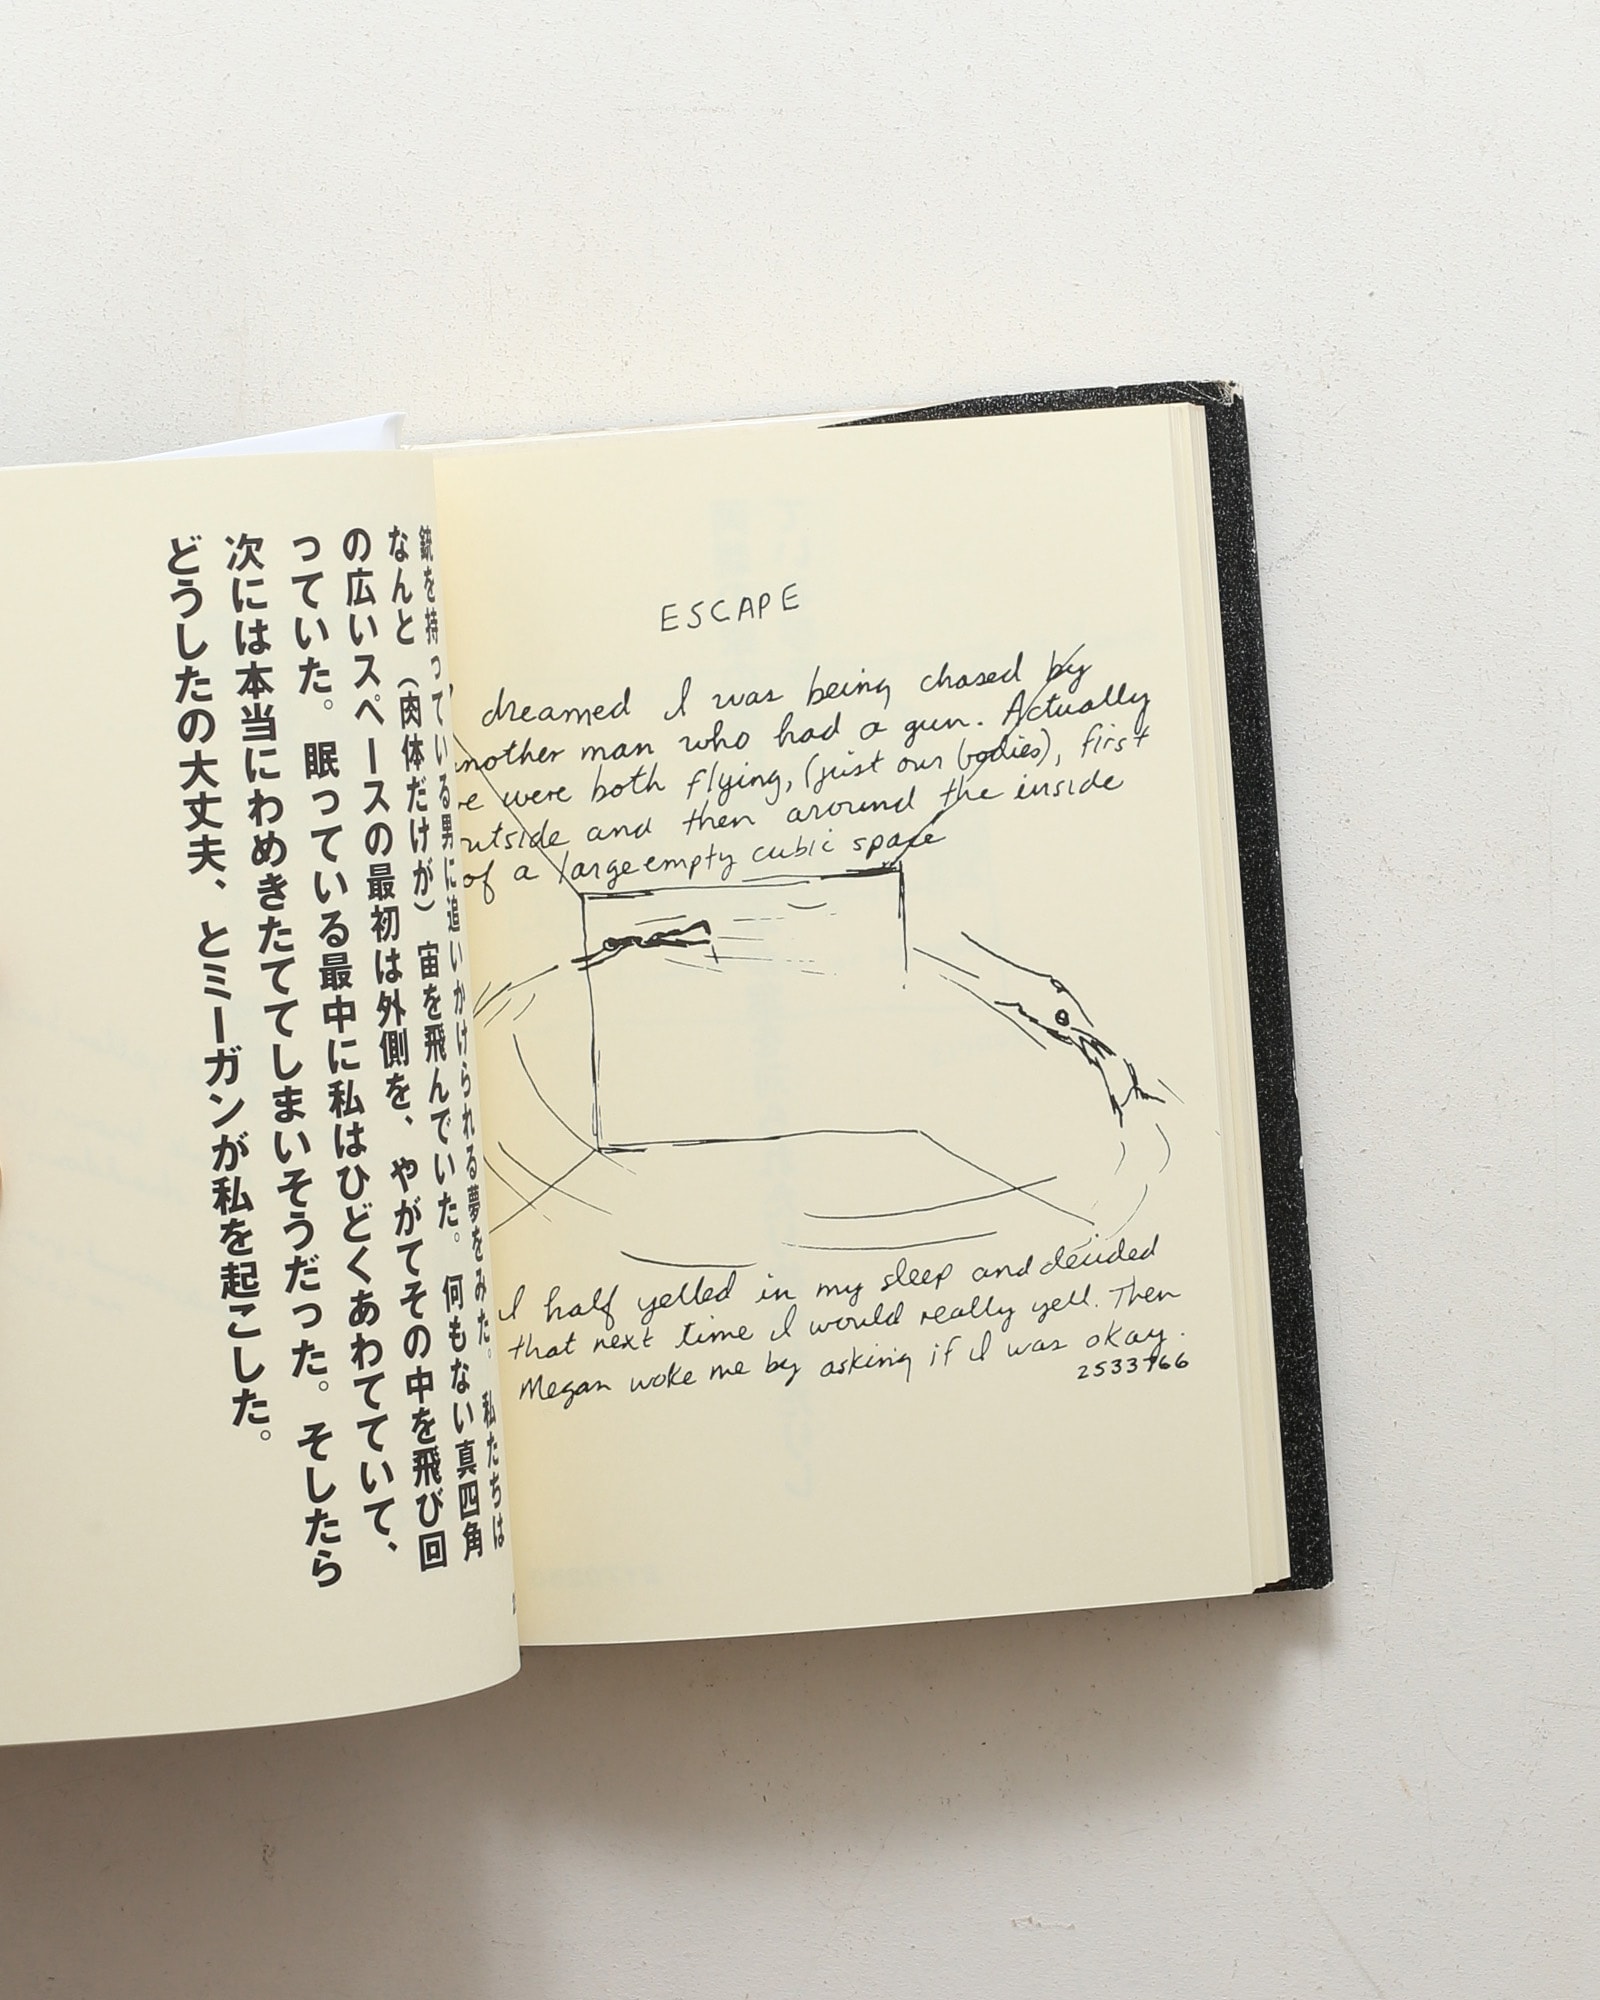 銃を持っている男に追いかけられる夢をみた。私たちは
なんと（肉体だけが）宙を飛んでいた。何もない真四角
の広いスペースの最初は外側を、やがてその中を飛び回
っていた。眠っている最中に私はひどくあわてていて、
次には本当にわめきたててしまいそうだった。そしたら
どうしたの大丈夫、とミーガンが私を起こした。
ESCAPE
dreamed I was being chased by
another man who had a gun. Actually
we were both flying, (just our bodies), first
outside and then around the inside
of a large empty cubic space
I half yelled in my sleep and decided
that next time I would really yell. Then
Megan woke me by asking if I was okay.
2533766